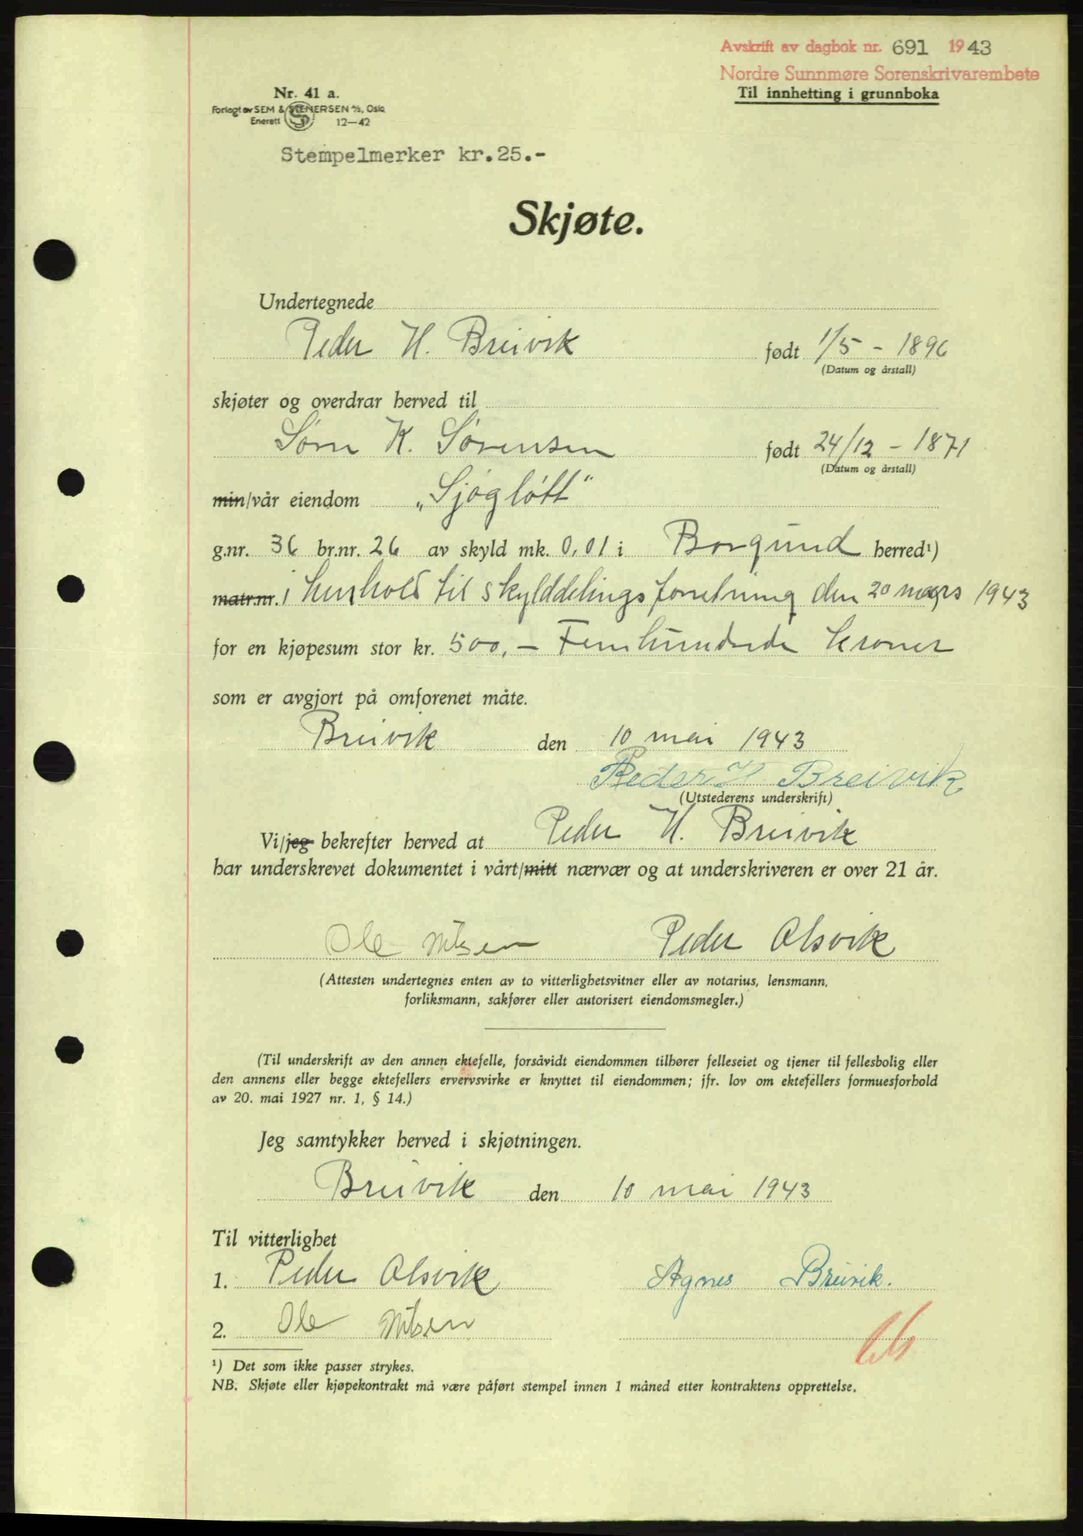 Avskrift av dagbok nr. 691 1943
Nordre Sunnmøre Sorenskrivarembete
Til innhetting i grunnboka
Nr. 41 a.
Forlagt av SEM & STENERSEN A/S, Oslo
Enerett 12—42
Stempelmerker kr.25.-
Skjøte.
Undertegnede
Peder H. Breivik født 1/5 - 1896
(Datum og årstall)
skjøter og overdrar herved til
Søren K. Sørensen født 24/12 - 1871
(Datum og årstall)
min/vår eiendom „Sjøgløtt"
g.nr. 36 br.nr. 26 av skyld mk. 0,01 i Borgund herred¹)
matr.nr. i henhold til skylddelingsforretning den 20 mars 1943
for en kjøpesum stor kr. 500,- Femhundrede kroner
som er avgjort på omforenet måte.
Breivik den 10 mai 1943
Peder H Breivik
(Utstederens underskrift)
Vi/jeg bekrefter herved at Peder H. Breivik
har underskrevet dokumentet i vårt/mitt nærvær og at underskriveren er over 21 år.
Ole Nilsen Peder Alsvik
(Attesten undertegnes enten av to vitterlighetsvitner eller av notarius, lensmann,
forliksmann, sakfører eller autorisert eiendomsmegler.)
(Til underskrift av den annen ektefelle, forsåvidt eiendommen tilhører felleseiet og tjener til fellesbolig eller
den annens eller begge ektefellers ervervsvirke er knyttet til eiendommen; jfr. lov om ektefellers formuesforhold
av 20. mai 1927 nr. 1, § 14.)
Jeg samtykker herved i skjøtningen.
Breivik den 10 mai 1943
Til vitterlighet
1. Peder Alsvik Agnes Breivik.
2. Ole Nilsen
¹) Det som ikke passer strykes.
NB. Skjøte eller kjøpekontrakt må være påført stempel innen 1 måned etter kontraktens opprettelse.